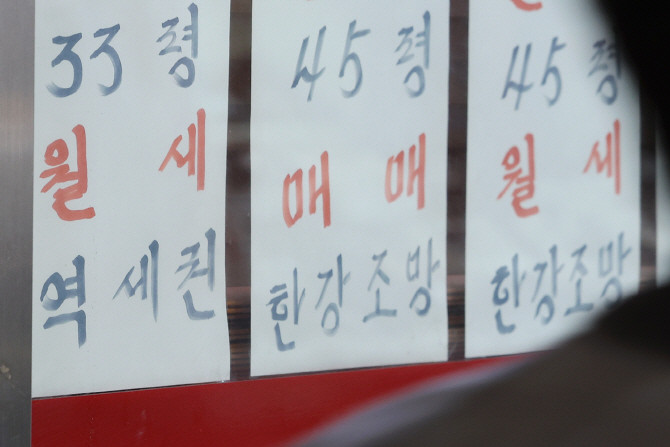 33 평
월 세
역 세권
45 평
매 매
한강 조망
45 평
월 세
한강조망